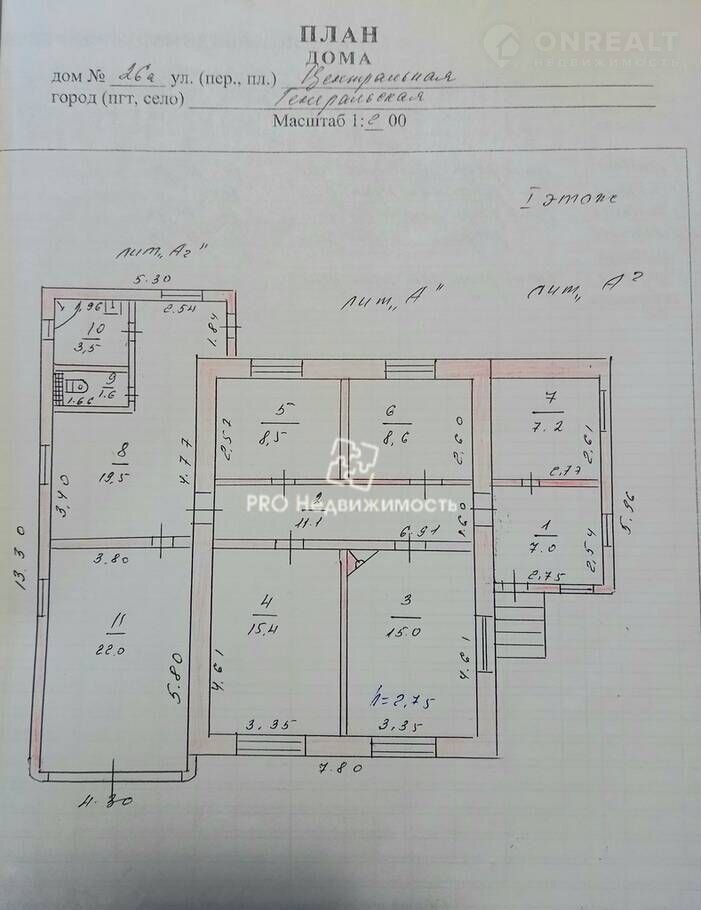 ONREALT
НЕДВИЖИМОСТЬ
ПЛАН
ДОМА
дом № 26а ул. (пер., пл.) Центральная
город (пгт, село) Генеральская
Масштаб 1:2 00
I этаж
лит„А2"
лит„А"
лит„А
5.30
1.96
2.54
1.84
10
3,5
9
1.6
1.66
8
19,5
3,40
4.77
3.80
13.30
11
22,0
5.80
4.30
5
8,5
2,52
6
8,6
2,60
7
7.2
2,61
2,77
PRO Недвижимость
2
11.1
6.91
1.60
1
7.0
2,54
2,75
5.96
4
15,4
4.61
3,35
3
15.0
4.61
h=2,75
3,35
7.80